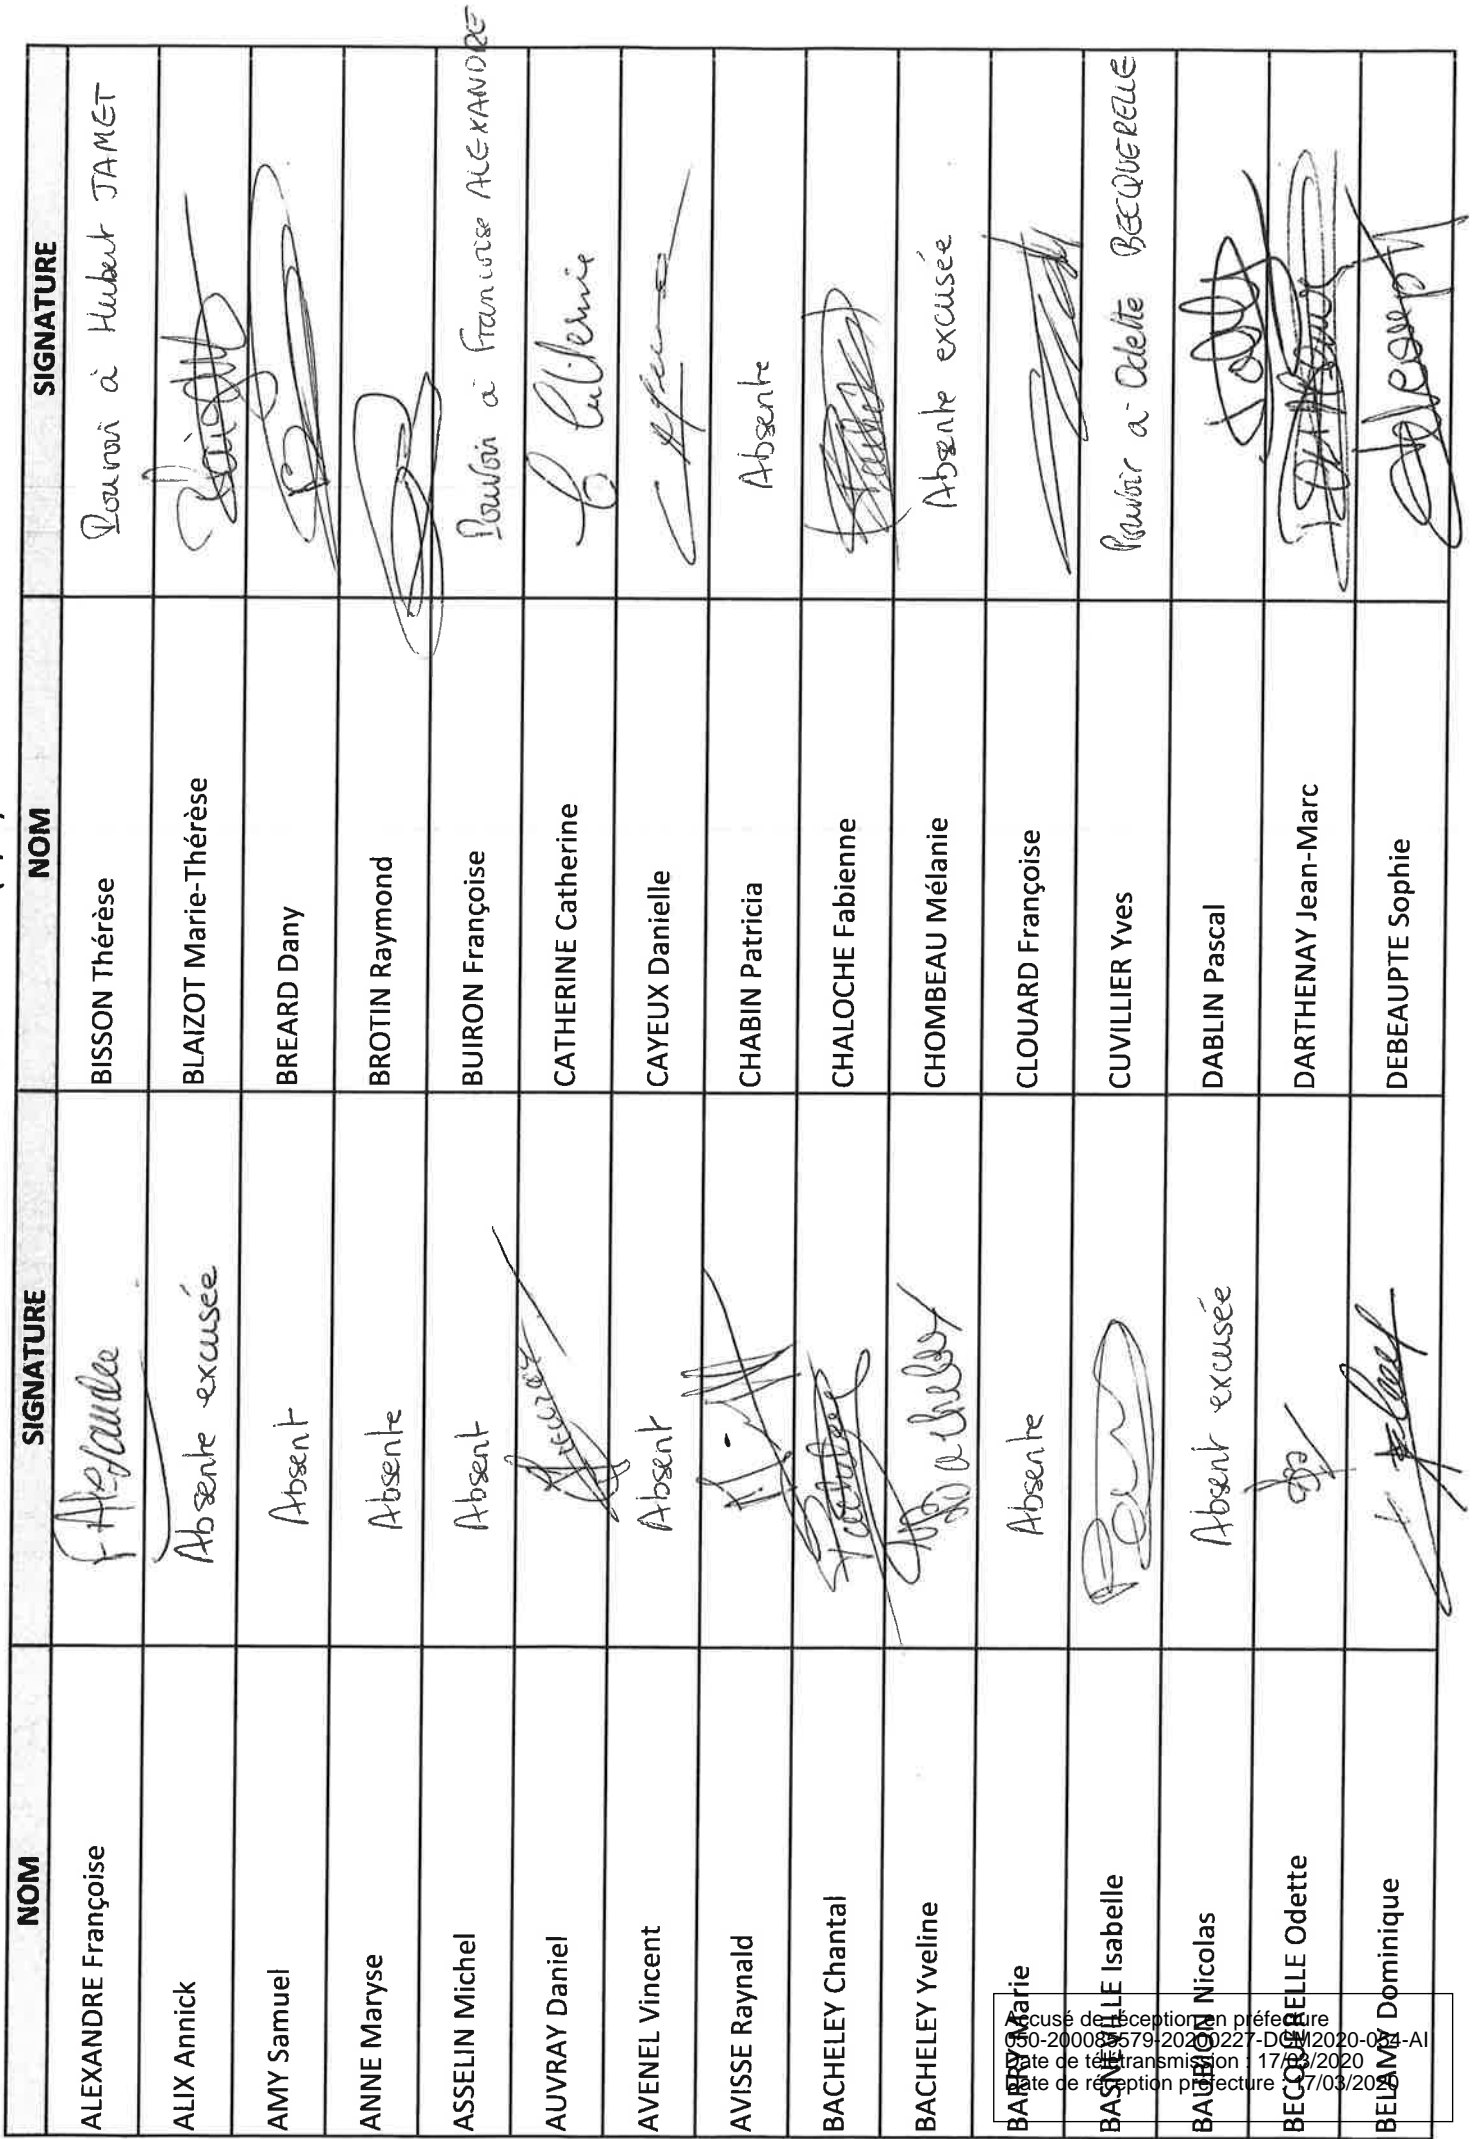 NOM SIGNATURE NOM SIGNATURE
ALEXANDRE Françoise BISSON Thérèse Pouvoir à Hubert JAMET
ALIX Annick Absente excusée BLAIZOT Marie-Thérèse
AMY Samuel Absent BREARD Dany
ANNE Maryse Absente BROTIN Raymond
ASSELIN Michel Absent BUIRON Françoise Pouvoir à Françoise ALEXANDRE
AUVRAY Daniel CATHERINE Catherine
AVENEL Vincent Absent CAYEUX Danielle
AVISSE Raynald CHABIN Patricia Absente
BACHELEY Chantal CHALOCHE Fabienne
BACHELEY Yveline Bacheley CHOMBEAU Mélanie Absente excusée
BARRY Marie Absente CLOUARD Françoise
BASNEVILLE Isabelle CUVILLIER Yves Pouvoir à Odette BECQUERELLE
BAUBION Nicolas Absent excusée DABLIN Pascal
BECQUERELLE Odette DARTHENAY Jean-Marc
BELAMY Dominique DEBEAUPTE Sophie
Accusé de réception en préfecture
050-200085579-20200227-DCM2020-034-AI
Date de télétransmission : 17/03/2020
Date de réception préfecture : 17/03/2020